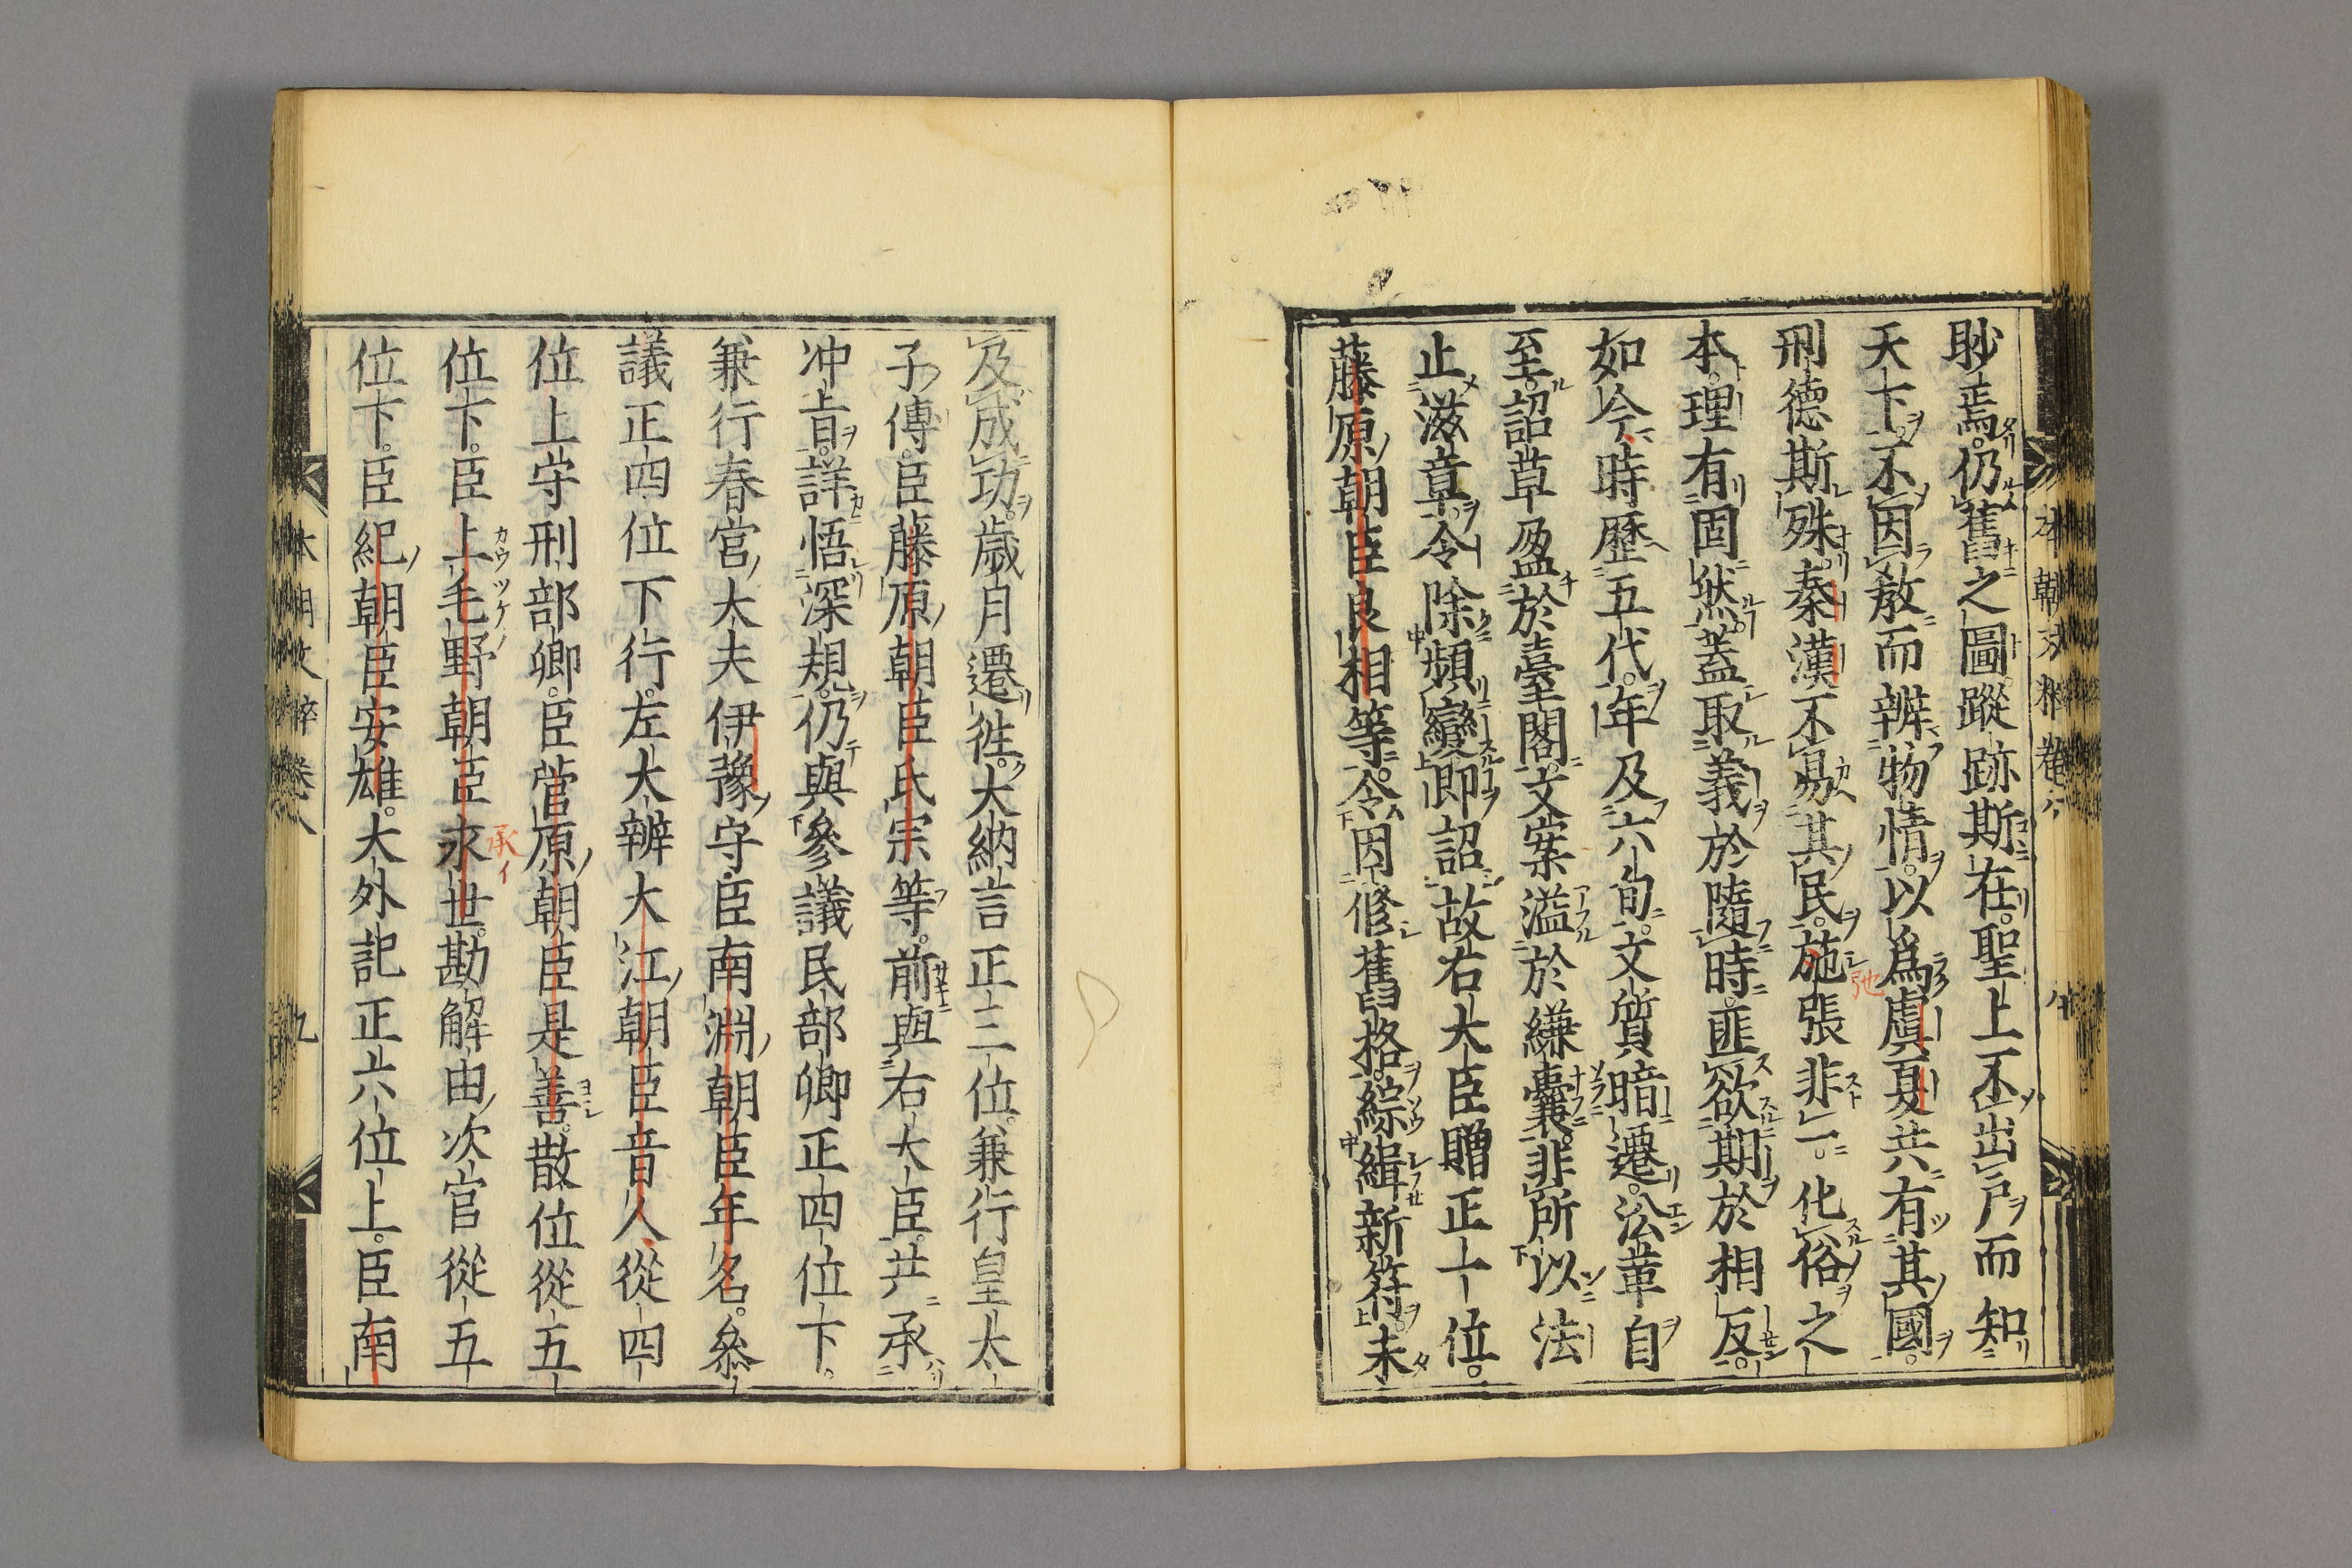 眇焉仍舊之圖蹤跡斯在聖上不出戶而知
天下不因敎而辨物情以爲虞夏共有其國
刑德斯殊秦漢不易其民施張非一化俗之
本理有固然蓋取義於隨時匪欲期於相反
如今時歷五代年及六旬文質暗遷沿革自
至詔草盈於臺閣文案溢於縑囊非所以法
止滋章令除頻變即詔故右大臣贈正一位
藤原朝臣良相等令因修舊格綜緝新符未
及成功歲月遷徃大納言正三位兼行皇太
子傅臣藤原朝臣氏宗等前與右大臣共承
冲旨詳悟深規仍與參議民部卿正四位下
兼行春宮大夫伊豫守臣南淵朝臣年名參
議正四位下行左大辨大江朝臣音人從四
位上守刑部卿臣菅原朝臣是善散位從五
位下臣上毛野朝臣永世勘解由次官從五
位下臣紀朝臣安雄大外記正六位上臣南
本朝文粹卷八
九